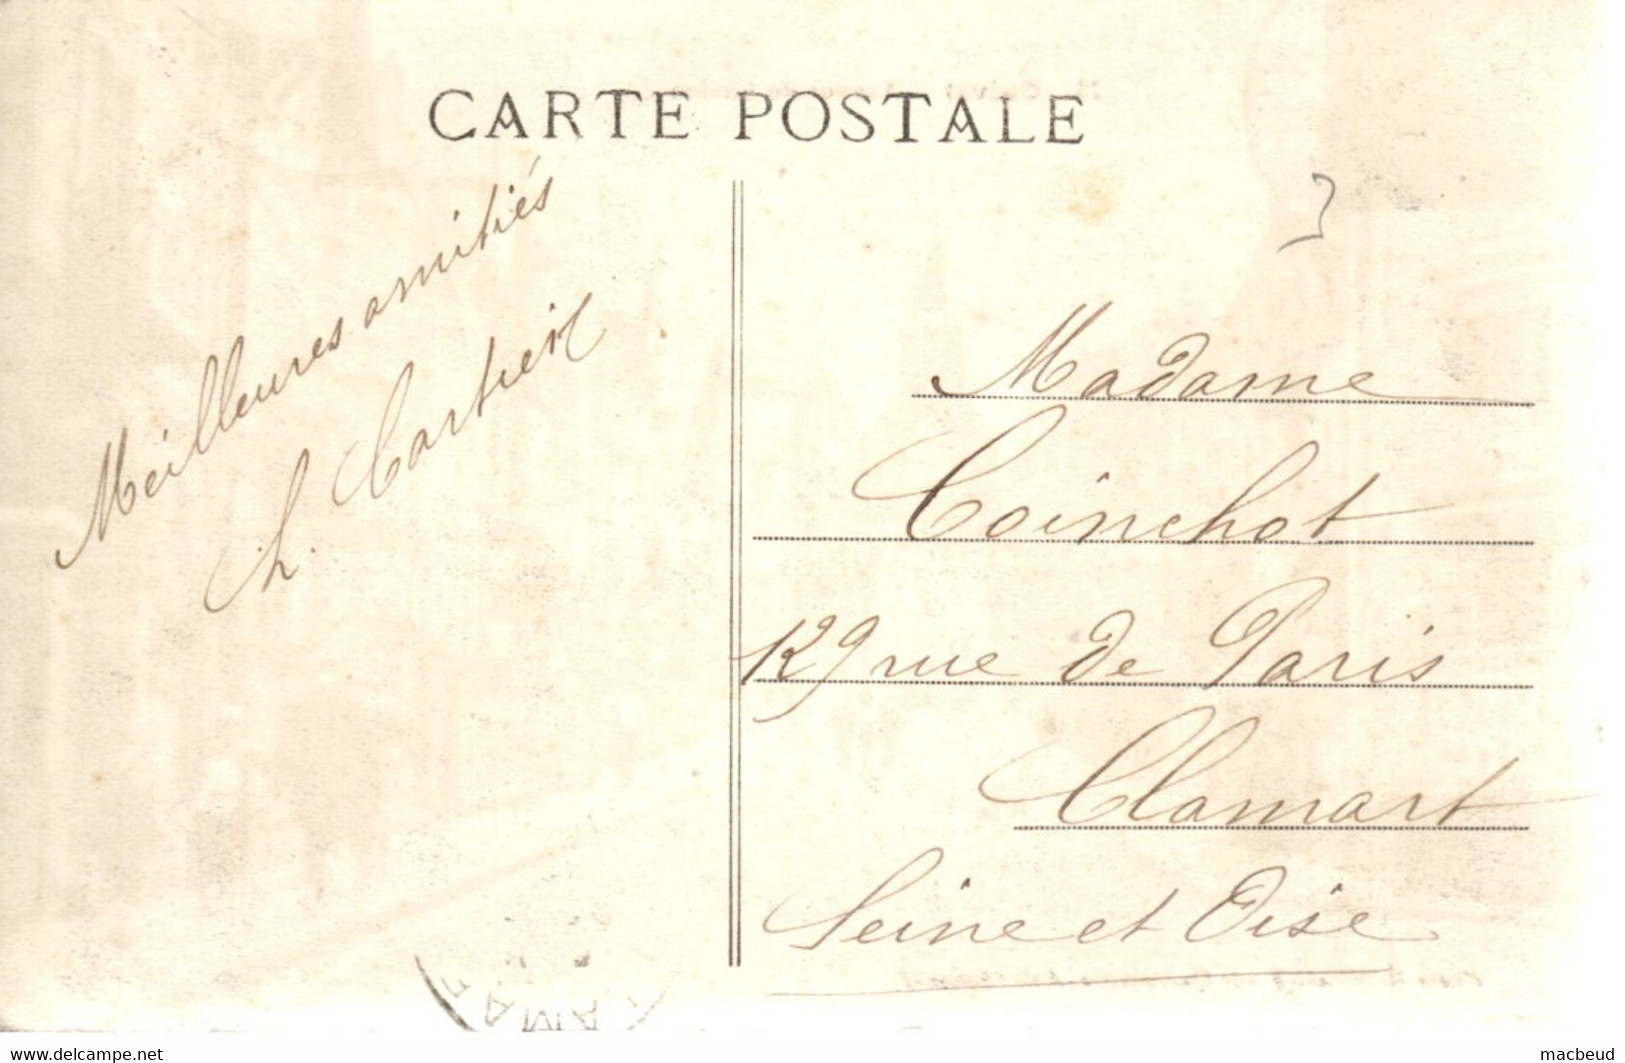 CARTE POSTALE
Meilleures amitiés
h. Cartier
3
Madame
Coinchot
129 rue de Paris
Clamart
Seine et Oise
www.delcampe.net
macbeud